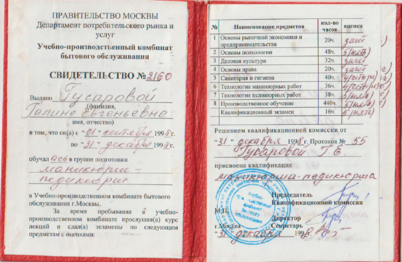 ПРАВИТЕЛЬСТВО МОСКВЫ
Департамент потребительского рынка и
услуг
Учебно-производственный комбинат
бытового обслуживания
СВИДЕТЕЛЬСТВО № 3160
Выдано Гусаровой
(фамилия,
Галине Евгеньевне
имя, отчество)
в том, что он(а) с "01" сентября 1998г.
по "31" декабря 1998г.
обучалась в группе подготовки
маникюрш-
педикюрш
в Учебно-производственном комбинате бытового
обслуживания г.Москвы.
За время пребывания в учебно-
производственном комбинате прослушал(а) курс
лекций и сдал(а) экзамены по следующим
предметам с оценками:
№ Наименование предметов кол-во часов оценка
1 Основы рыночной экономики и предпринимательства 20ч. зачёт
2 Основы психологии 48ч.
3 Деловая культура 32ч. зачёт
4 Основы права 20ч. зачёт
5 Санитария и гигиена 40ч.
6 Технология маникюрных работ 36ч.
7 Технология педикюрных работ
8 Производственное обучение 440ч.
9 Квалификационный экзамен 16ч.
Решением квалификационной комиссии от
"31" декабря 1998г. Протокол № 55
Гусаровой Г.Е.
присвоена квалификация
маникюрша-педикюрша
Председатель
Квалификационной комиссии
М.П.
Директор
Секретарь
г.Москва
"31" декабря 1998